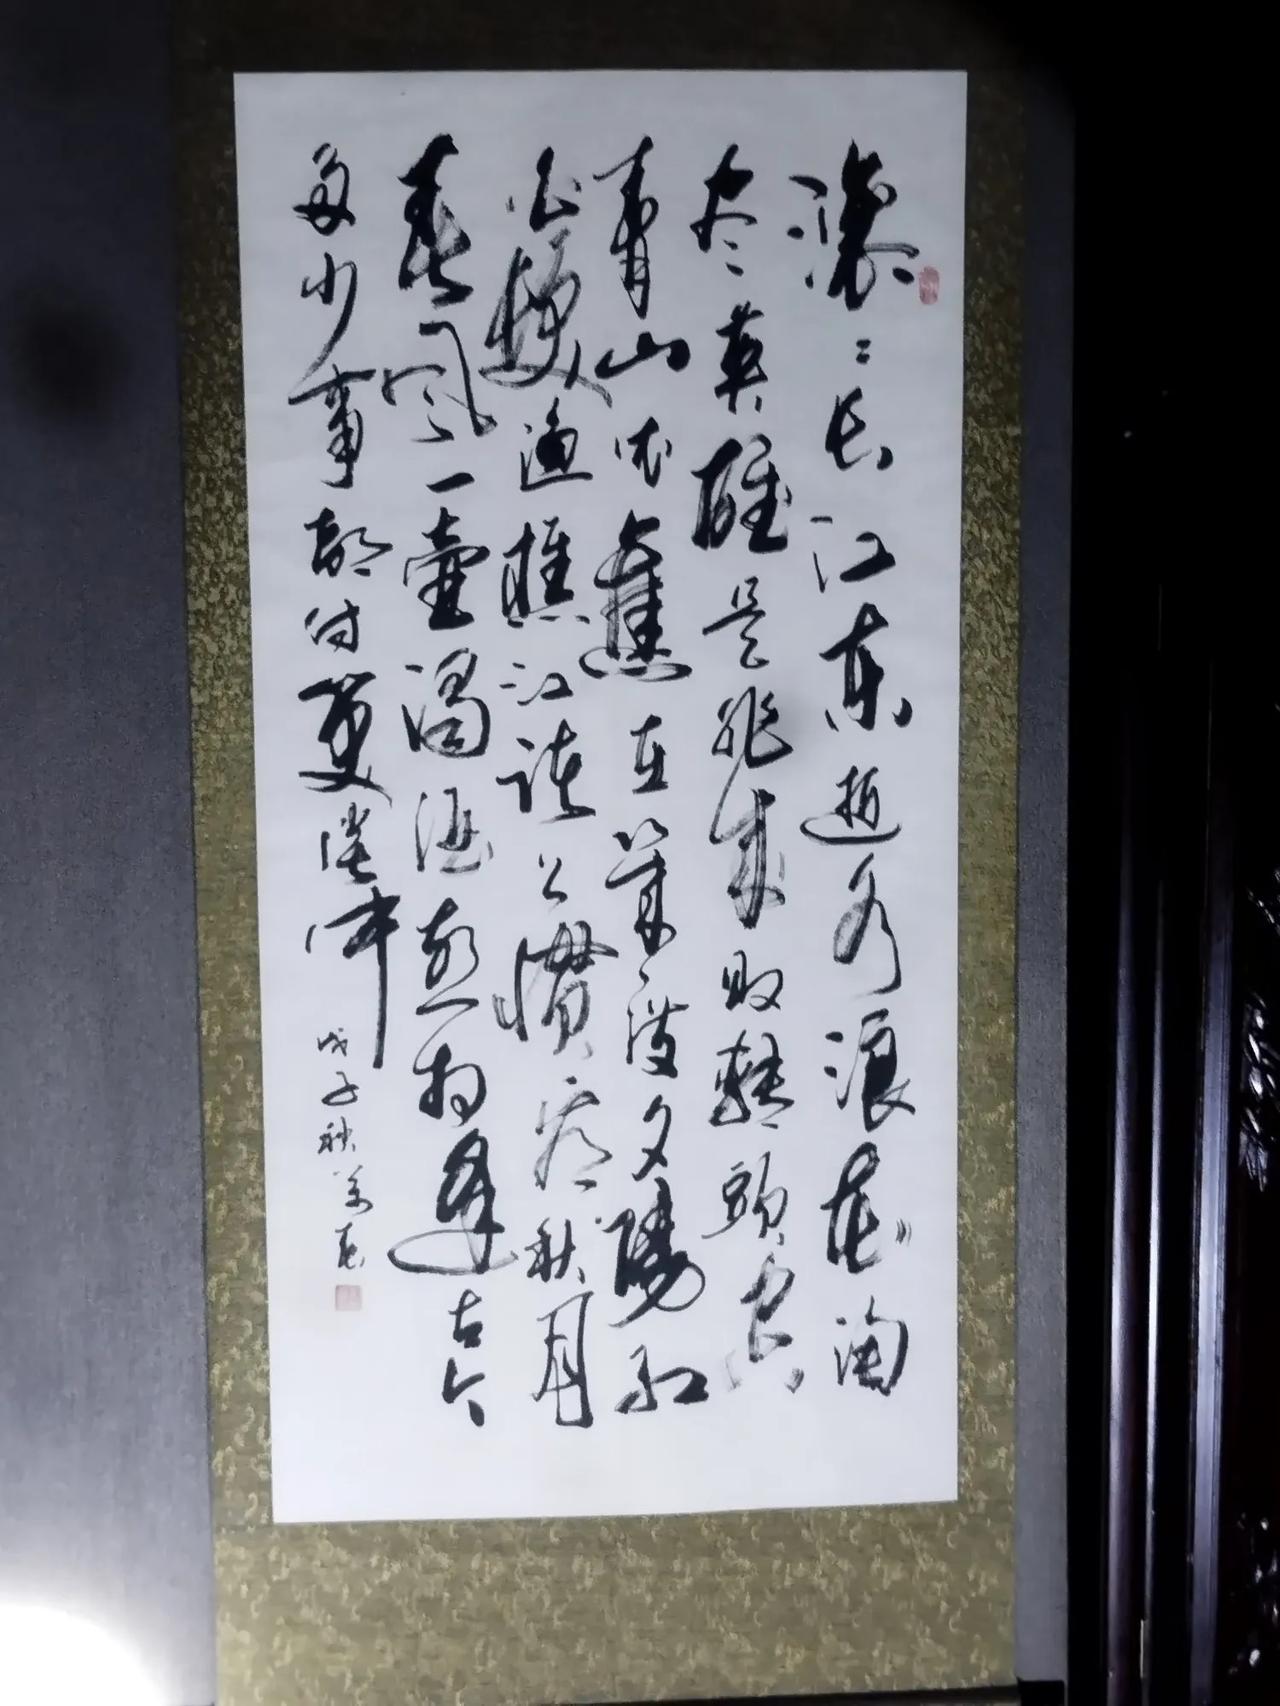 滚滚长江东逝水浪花淘
尽英雄是非成败轉頭空
青山依舊在幾度夕陽红
白髮渔樵江渚上惯看秋月
春风一壶濁酒喜相逢古今
多少事都付笑谈中
戊子秋